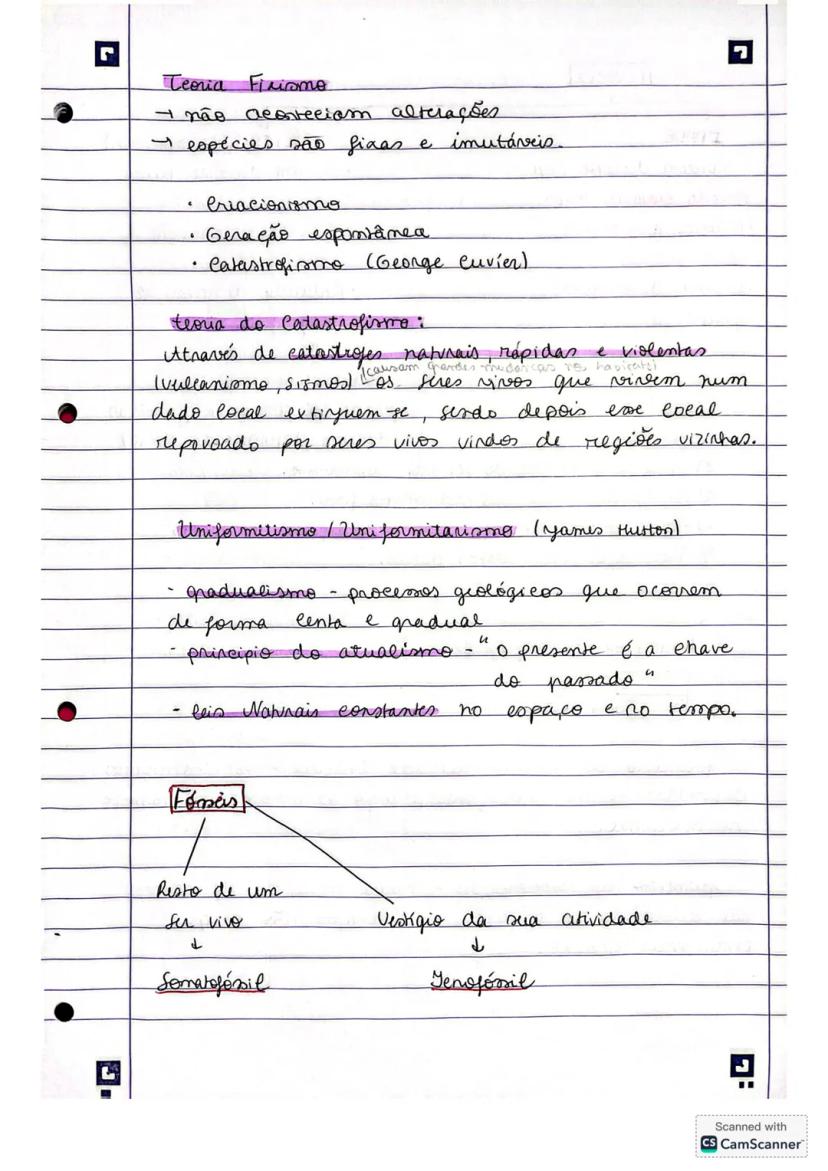 Teoria Fixismo
→ não aconteciam alterações
→ espécies são fixas e imutáveis.
• Criacionismo
• Geração espontânea
• Catastrofismo (George Cuvier)
teoria do Catastrofismo:
Através de catastrofes naturais, rápidas e violentas
(causam grandes mudanças nos habitats)
(vulcanismo, sismos) os seres vivos que vivem num
dado local extinguem-se, sendo depois esse local
repovoado por seres vivos vindos de regiões vizinhas.
Uniformitismo / Uniformitarismo (James Hutton)
- gradualismo - processos geológicos que ocorrem
de forma lenta e gradual
- principio do atualismo - "O presente é a chave
do passado"
- leis Naturais constantes no espaço e no tempo.
Fósseis
Resto de um
ser vivo
Vestígio da sua atividade
↓ ↓
Somatofóssil Icnofóssil
Scanned with
CS CamScanner